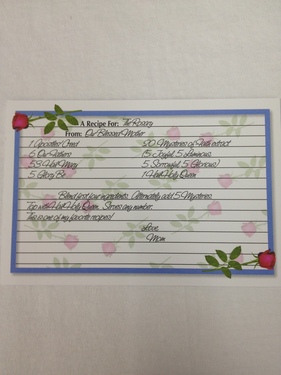 A Recipe For: The Rosary
From: Our Blessed Mother
1 Apostles' Creed 20 Mysteries of Faith extract
6 Our Fathers 15 (5 Joyful, 5 Luminous,
53 Hail Mary 5 Sorrowful, 5 Glorious)
5 Glory Be 1 Hail Holy Queen
Blend first four ingredients. Alternately add 5 Mysteries.
Top with Hail Holy Queen. Serves any number.
This is one of my favorite recipes!
Love,
Mom